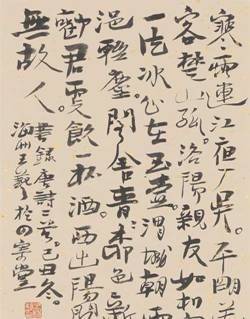 寒雨連江夜入吳。平明
客楚山孤。洛陽親友如相
一片冰心在玉壺。渭城朝雨
浥輕塵。客舍青青柳色新
勸君更飲一杯酒。西出陽關
無故人。
書錄唐詩二首。己丑冬。
海州王於四寧堂